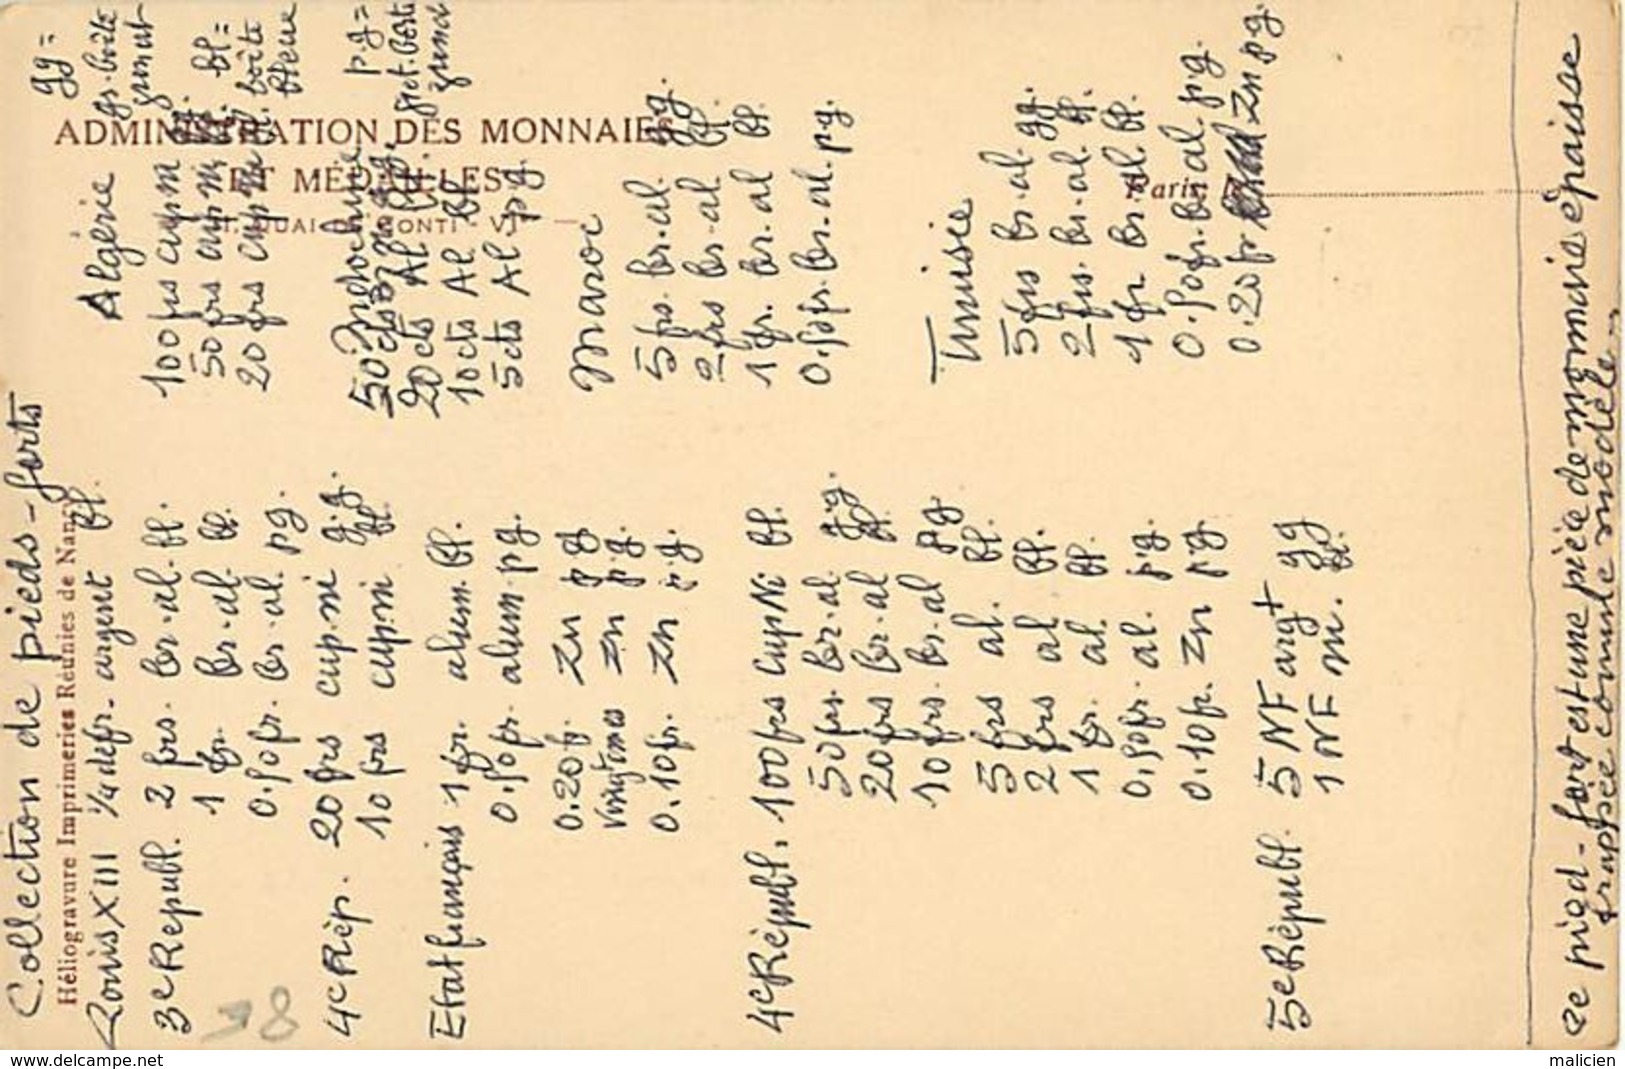 ADMINISTRATION DES MONNAIES
ET MÉDAILLES
QUAI DE CONTI - VI
Paris,
Héliogravure Imprimeries Réunies de Nancy
Collection de pieds-forts
Louis XIII 1/4 de fr. argent Bl.
3e Republ. 2 frs. br.al. Bl.
1 fr. br.al. Bl.
0.50 fr. br al. pg.
4e Rép. 20 frs cup.ni g.g.
10 frs cup.ni Bl.
Etat français 1 fr. alum. Bl.
0.50 fr. alum. pg.
0.20 fr. Zn pg
Vingt Zn p.g.
0.10 fr. Zn p.g.
4e Républ. 100 frs Cup Ni Bl.
50 frs. br.al. g.g.
20 frs br.al Bl.
10 frs. br.al pg
5 frs al. Bl.
2 frs al Bl.
1 fr. al. Bl.
0.50 fr. al. pg.
0.10 fr. Zn pg
5e Républ. 5 NF arg+ gg
1 NF m. Bl.
gg =
gr. boîte
grenat
Bl =
boîte
bleue
p.g =
pet. boîte
grenat
Algérie
100 frs cup.ni
50 frs cup.ni
20 frs cup.ni
Indochine
50 cts
20 cts Al
10 cts Al Bl
5 cts Al pg
Maroc
5 frs. br.al. gg.
2 frs br-al Bl
1 fr. br.al Bl.
0.50 fr. br.al. pg.
Tunisie
5 frs br.al. gg.
2 frs. br.al. Bl.
1 fr br al. Bl.
0.50 fr. br al. pg.
0.20 fr Zn pg.
Ce pied-fort est une pièce de monnaie épaisse
frappée comme modèle.
58
www.delcampe.net
malicien